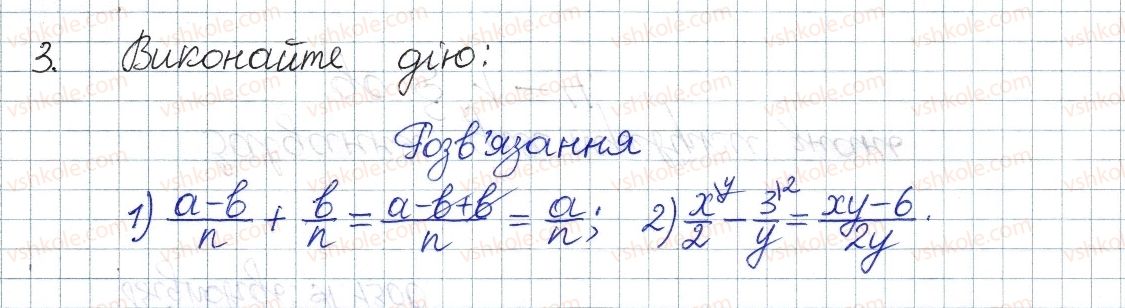 3. Виконайте дію:
Розв'язання
1) a-b/n + b/n = a-b+b/n = a/n; 2) x\y/2 - 3\2/y = xy-6/2y.